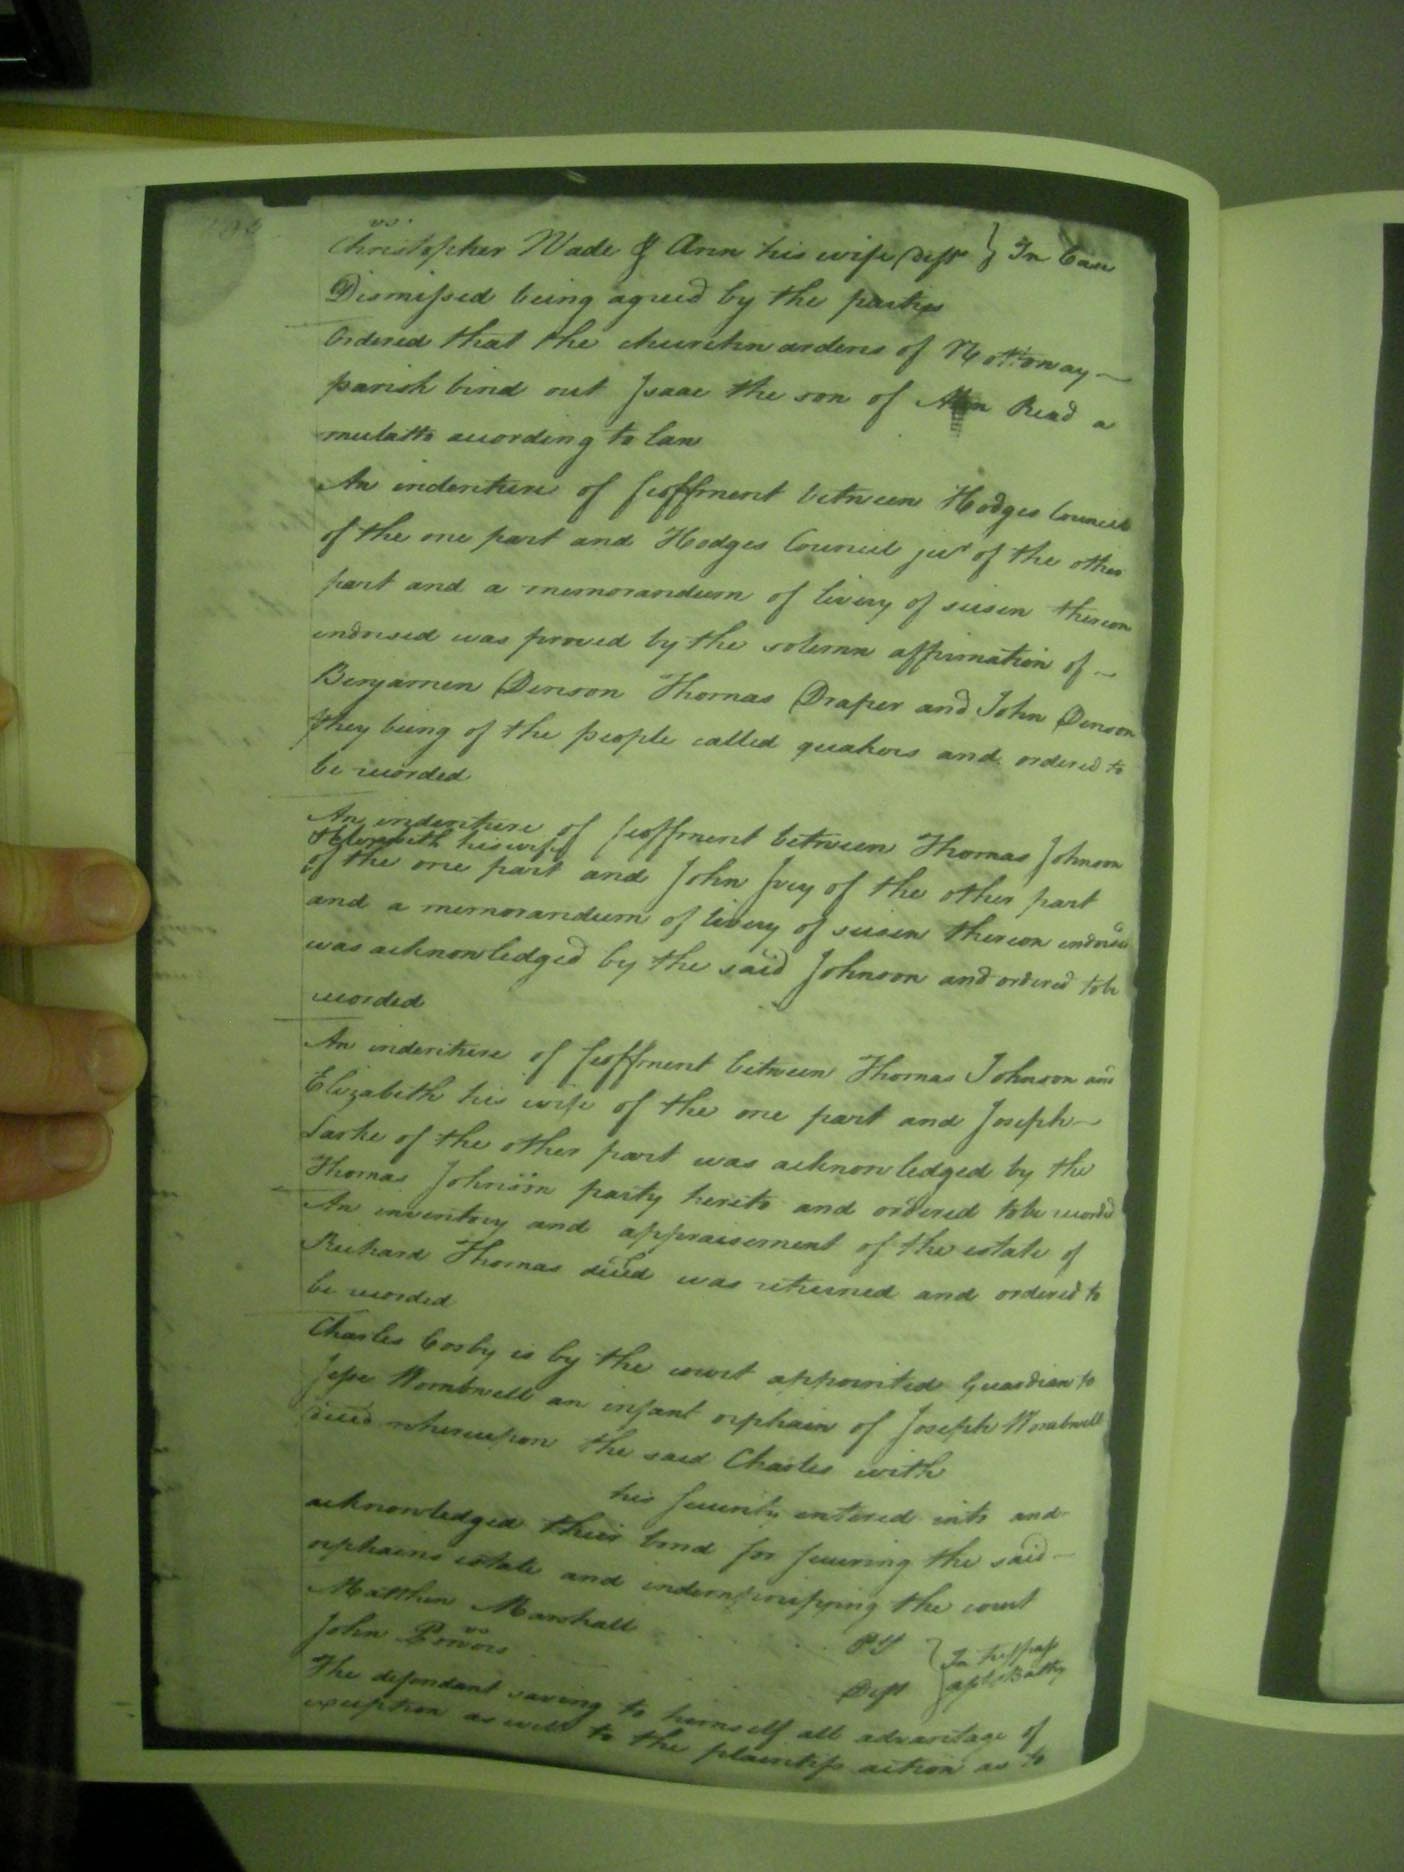 vs.
Christopher Wade & Ann his wife Deft } In Case
Dismissed being agreed by the parties
Ordered that the churchwardens of Nottoway
parish bind out Isaac the son of Read a
mulatto according to law
An indenture of feoffment between Hodges Council
of the one part and Hodges Council junr of the other
part and a memorandum of livery of seisen thereon
indorsed was proved by the solemn affirmation of
Benjamen Denson Thomas Draper and John Denson
they being of the people called quakers and ordered to
be recorded
An indenture of feoffment between Thomas Johnson
his wife
of the one part and John Ivey of the other part
and a memorandum of livery of seisen thereon indorsed
was acknowledged by the said Johnson and ordered to be
recorded
An indenture of feoffment between Thomas Johnson and
Elizabeth his wife of the one part and Joseph
Larke of the other part was acknowledged by the
Thomas Johnson party hereto and ordered to be recorded
An inventory and appraisement of the estate of
Richard Thomas deced was returned and ordered to
be recorded
Charles Cosby is by the court appointed Guardian to
Jesse Wombwell an infant orphain of Joseph Wombwell
deced whereupon the said Charles with
his security entered into and
acknowledged their bond for securing the said
orphains estate and the court
Matthew Marshall Plt
vs
John Powers Deft } In trespass aslt & Battery
The defendant saving to himself all advantage of
exception as well to the plaintifs action as to